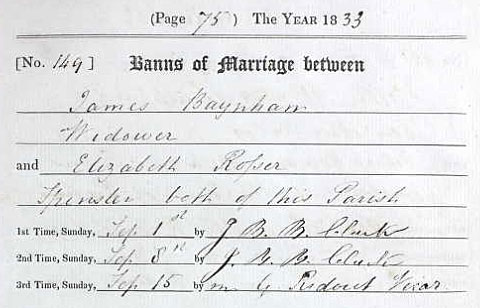 (Page 75) The YEAR 1833
[No. 149] Banns of Marriage between
James Baynham
Widower
and Elizabeth Rosser
Spinster both of this Parish
1st Time, Sunday, Sep 1st by J. B. B. Clark
2nd Time, Sunday, Sep 8th by J. B. B. Clark
3rd Time, Sunday, Sep 15 by G Ridout Vicar